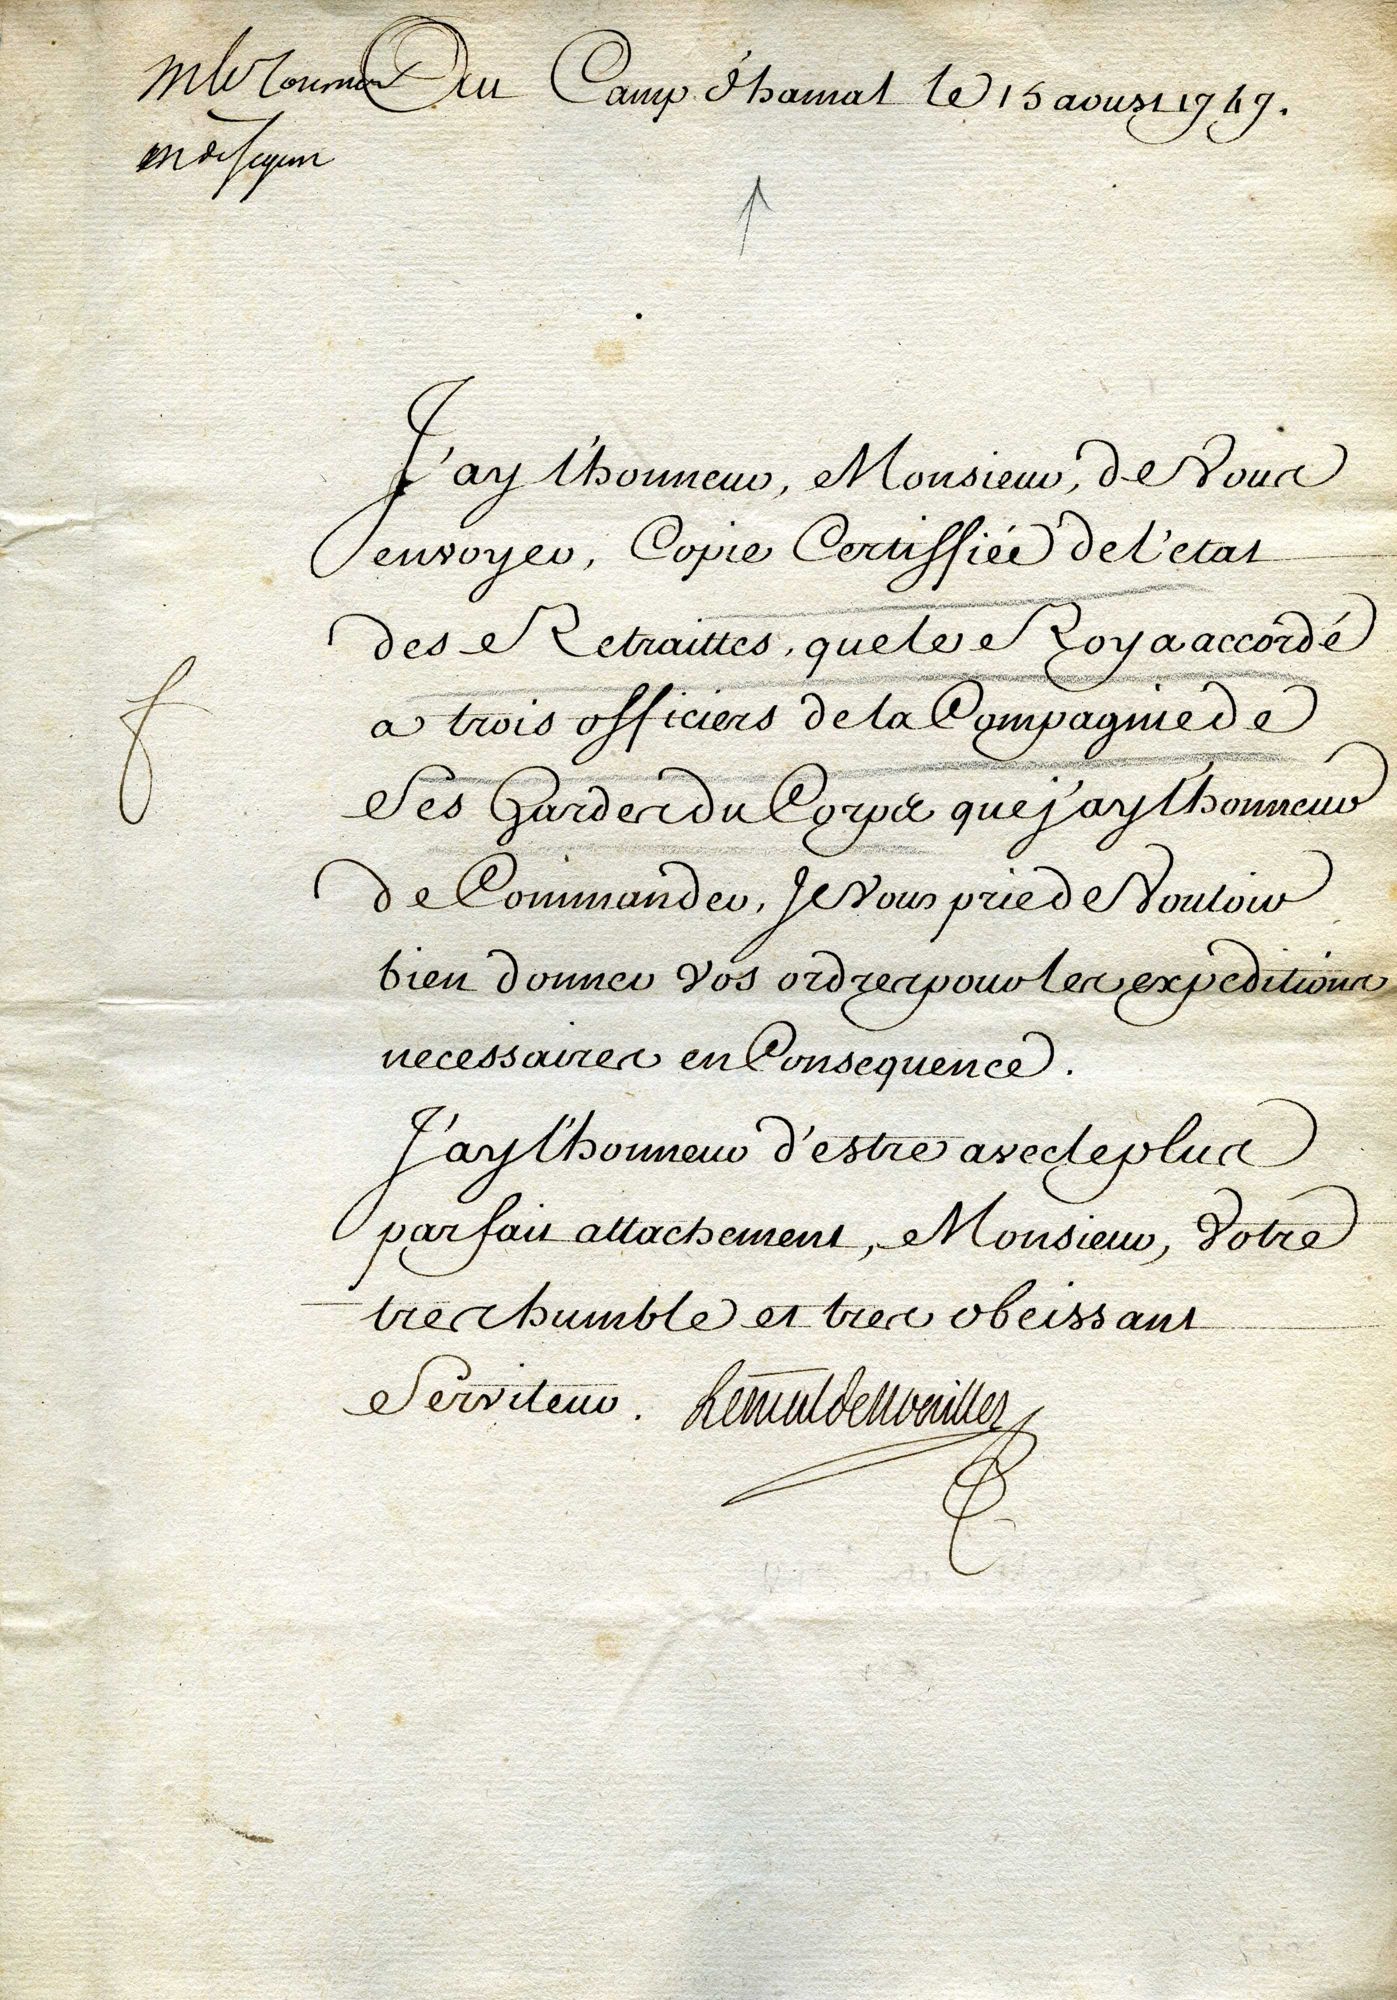 Au Camp d'hamal le 15 aoust 1747.
J'ay l'honneur, Monsieur, de Vous
envoyer, Copie Certiffiée de l'etat
des Retraittes, que le Roy a accordé
a trois officiers de la Compagnie de
Ses Gardes du Corps que j'ay l'honneur
de Commander, je vous prie de Vouloir
bien donner vos ordres pour les expeditions
necessaires en Consequence.
J'ay l'honneur d'estre avec le plus
parfait attachement, Monsieur, Votre
tres humble et tres obeissant
Serviteur. Le mal de Noailles